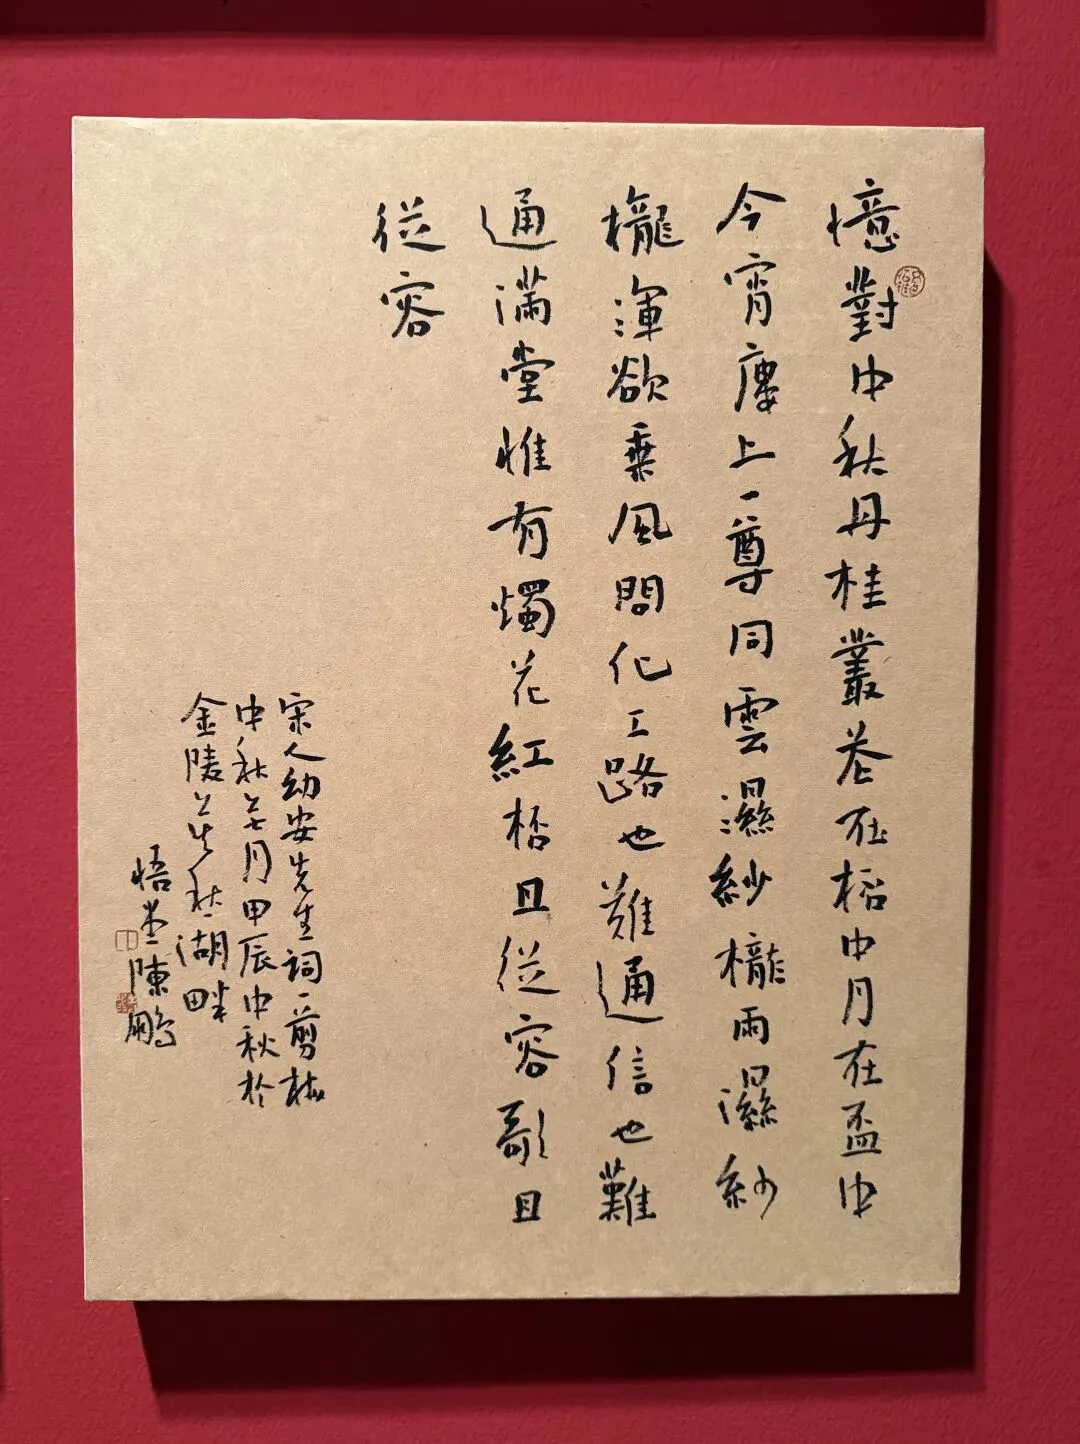 憶對中秋丹桂叢花在桮中月在盃中
今宵廔上一尊同雲濕紗櫳雨濕紗
櫳渾欲乘風問化工路也難通信也難
通滿堂惟有燭花紅桮且從容歌且
從容
宋人幼安先生詞一剪梅
中秋无月甲辰中秋於
金陵莫愁湖畔
悟堂陳鵬